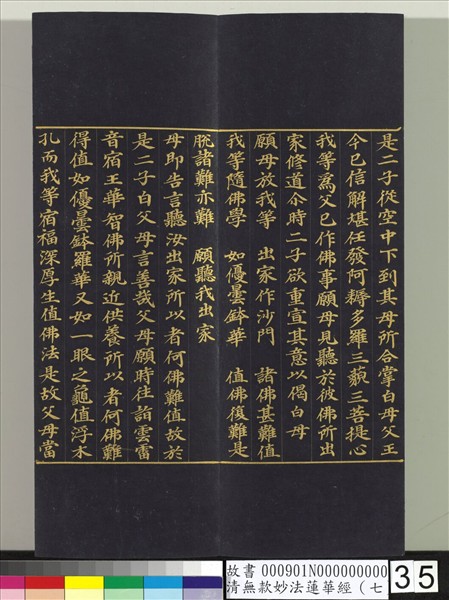 是二子從空中下到其母所合掌白母父王
今已信解堪任發阿耨多羅三藐三菩提心
我等為父已作佛事願母見聽於彼佛所出
家修道尒時二子欲重宣其意以偈白母
願母放我等　出家作沙門　諸佛甚難值
我等隨佛學　如優曇鉢華　值佛復難是
脫諸難亦難　願聽我出家
母即告言聽汝出家所以者何佛難值故於
是二子白父母言善哉父母願時往詣雲雷
音宿王華智佛所親近供養所以者何佛難
得值如優曇鉢羅華又如一眼之龜值浮木
孔而我等宿福深厚生值佛法是故父母當
故書 000901N000000000
清無款妙法蓮華經（七
35